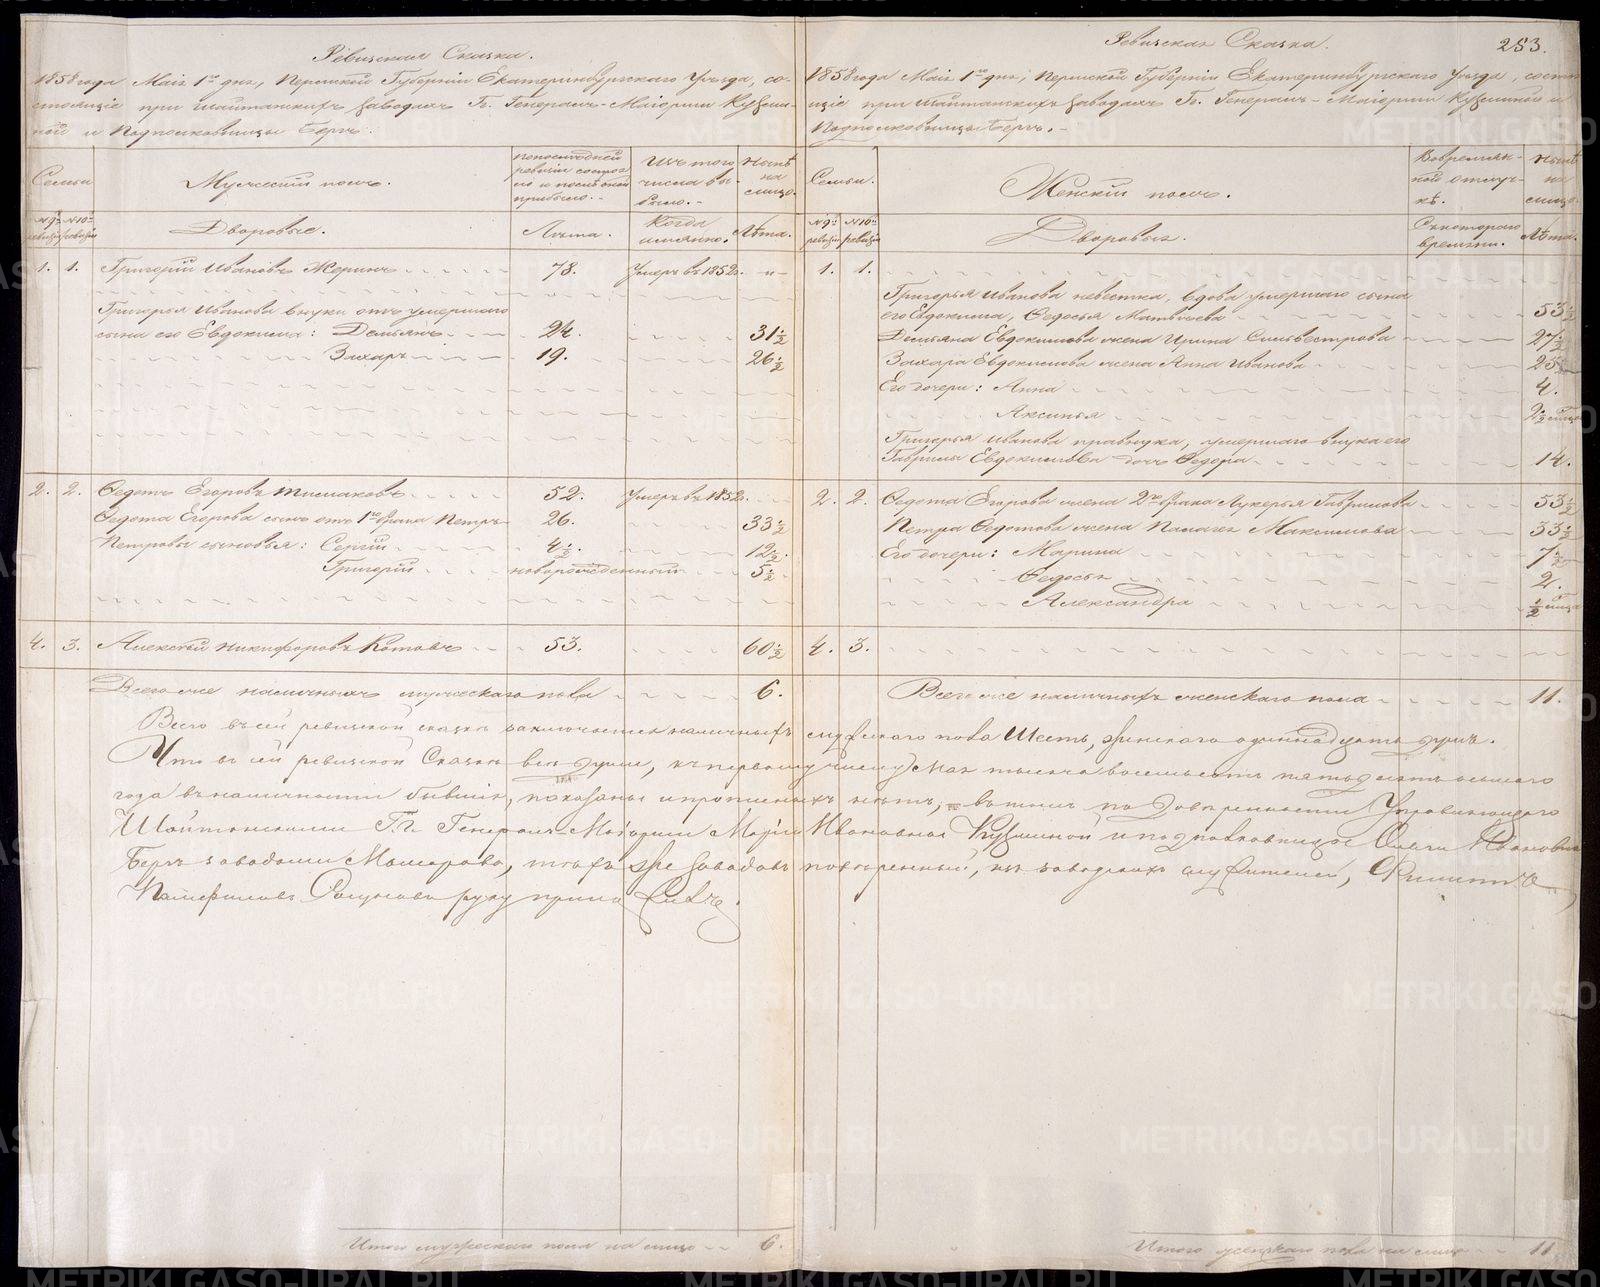 Ревизская Сказка.
1858 года Маія 1го дня, Пермской Губерніи Екатеринбургскаго Уѣзда, со-
стоящіе при Шайтанскихъ заводахъ Гг. Генералъ-Маіорши Кузьми-
ной и Подполковницы Бергъ.
Семьи
Мужескій полъ.
По последней ревизіи состояло и после оной прибыло.
Изъ того числа выбыло.
Нынѣ на лицо.
№ 9й ревизіи
№ 10й ревизіи
Дворовые.
Лѣта.
Когда имянно.
Лѣта.
1. 1. Григорій Ивановъ Жеринъ 78. Умеръ въ 1852. -"-
Григорья Иванова внуки отъ умершаго
сына его Евдокима: Демьянъ 24. 31½
Захаръ 19. 26½
2. 2. Федотъ Егоровъ 52. Умеръ въ 1852.
Федота Егорова сынъ отъ 1го брака Петръ 26. 33½
Петровы сыновья: Сергій 4½. 12½.
Григорій новорожденный 5½
4. 3. Алексѣй Никифоровъ Котовъ 53. 60½
Всего же наличныхъ мужескаго пола 6.
253.
Ревизская Сказка.
1858 года Маія 1го дня, Пермской Губерніи Екатеринбургскаго Уѣзда, состоя
щіе при Шайтанскихъ заводахъ Гг. Генералъ-Маіорши Кузьминой и
Подполковницы Бергъ.-
Семьи.
Женскій полъ.
Во временной отлучкѣ.
Нынѣ на лицо.
№ 9й ревизіи
№ 10й ревизіи
Дворовыя.
Съ котораго времени.
Лѣта.
1. 1.
Григорья Иванова невестка, вдова умершаго сына
его Евдокима, Федосья Матвѣева 53½
Демьяна Евдокимова жена Ирина Сильвестрова 27½
Захара Евдокимова жена Анна Иванова 25½
Его дочери: Анна 4.
Аксинья 2½ мѣсяца
Григорья Иванова правнука, умершаго внука его
Гаврилы Евдокимова дочь Федора 14.
2. 2. Федота Егорова жена 2го брака Лукерья Гаврилова 53½
Петра Федотова жена Палагея Максимова 33½
Его дочери: Марина 7½
Федосья 2.
Александра ½ мѣсяца
4. 3.
Всего же наличныхъ женскаго пола 11.
Всего въ сей ревизской сказкѣ заключается наличныхъ мужескаго пола Шесть, женскаго одиннадцать душъ.
Что въ сей ревизской Сказкѣ всѣ души, къ первому числу Мая тысяча восемьсотъ пятьдесятъ осьмаго
года въ наличности бывшіе, показаны и прописныхъ нѣтъ, въ томъ по довѣренности Управляющаго
Шайтанскими Гг. Генералъ-Маіорши Маріи Ивановной Кузьминой и подполковницы Ольги Ивановны
Бергъ заводами, тѣхъ же заводовъ повѣренный, изъ заводскихъ служителей, Филиппъ
Панфиловъ руку приложилъ.
Итого мужескаго пола на лицо 6.
Итого женскаго пола на лицо 11
METRIKI.GASO-URAL.RU